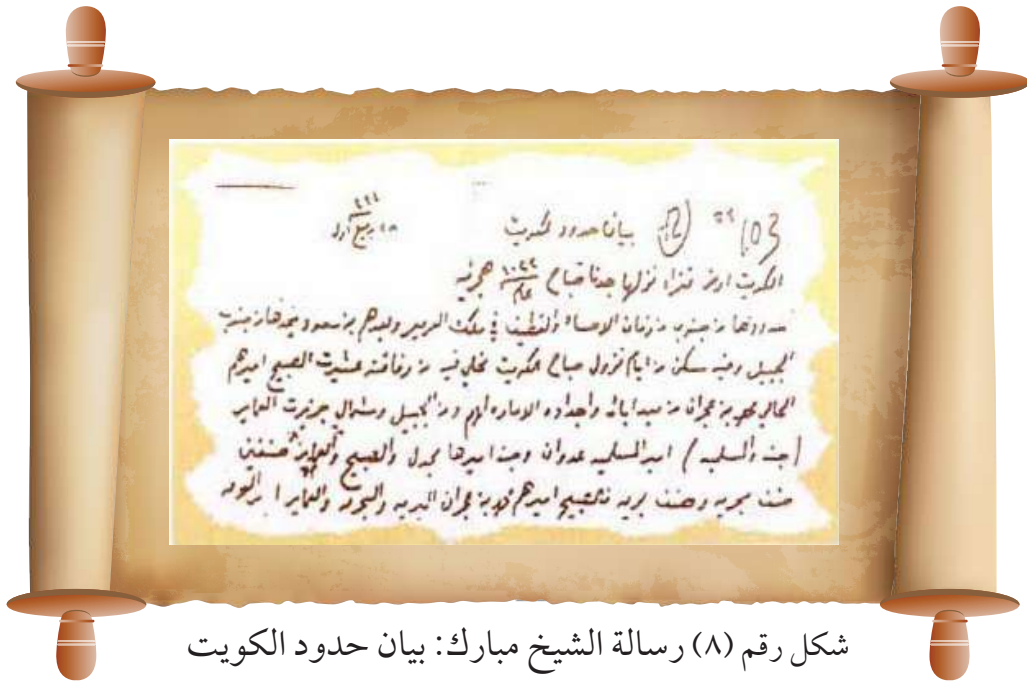 103
بيان حدود الكويت
٢٨ ربيع أول
الكويت ارض قفرا نزلها جدنا صباح عام ١٠٢٢ هجريه
حدودها من جنوب من زمان الاحساء والقطيف في ملك العريعر وبعدهم بن سعود يحدها من جنوب
الجبيل وفيه سكن من ايام نزول صباح الكويت محل فيه من رفاقته عشيرت الصبيح اميرهم
الحالي بن عمران من ابائه واجداده الاماره لهم ومن الجبيل وشمال جزيرت العماير
(جنه والمسلميه) امير المسلميه عدوان وجنه اميرها والصبيح والعماير صنفين
صنف بحريه وصنف بريه الصبيح اميرهم بن عمران البريه والبحريه والعماير
شكل رقم (٨) رسالة الشيخ مبارك: بيان حدود الكويت